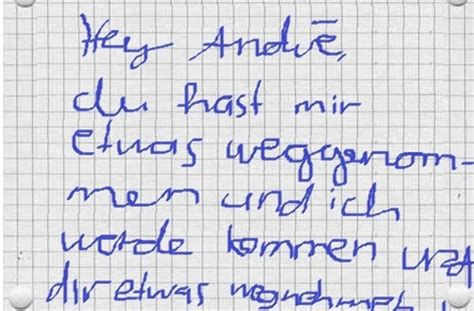 Hey André,
du hast mir
etwas weggenom-
men und ich
werde kommen und
dir etwas wegnehmen